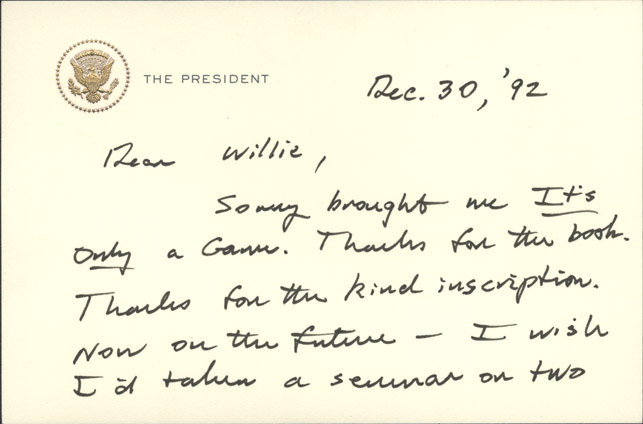 THE PRESIDENT
Dec. 30, '92
Dear Willie,
Sonny brought me It's
Only a Game. Thanks for the book.
Thanks for the kind inscription.
Now on the future — I wish
I'd taken a seminar on two